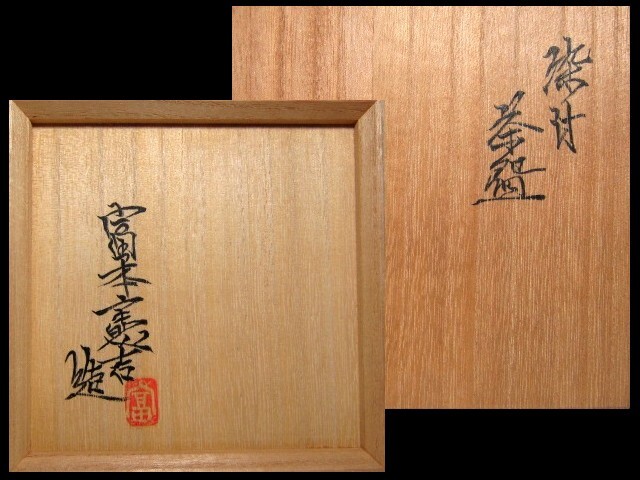 染付
茶盌
富本憲吉
造
富